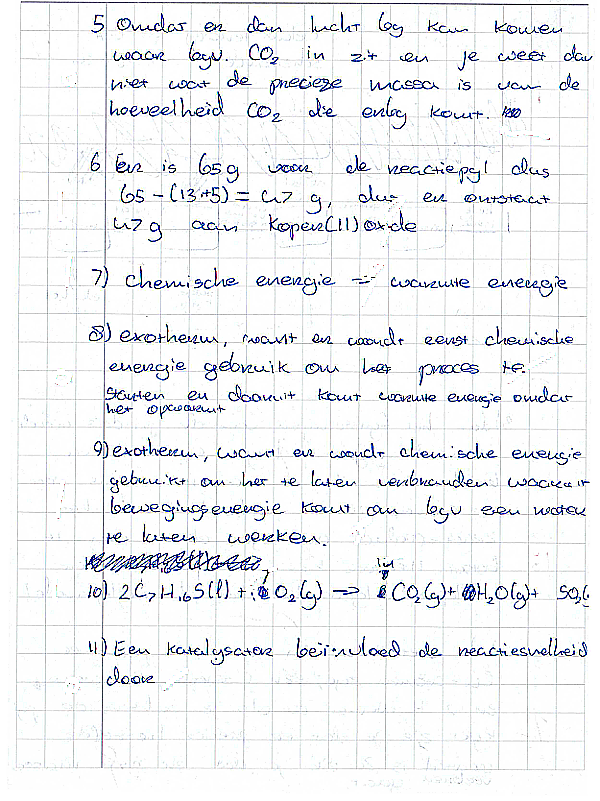 5 Omdat er dan lucht bij kan komen
waar bijv. CO₂ in zit en je weet dan
niet wat de precieze massa is van de
hoeveelheid CO₂ die erbij komt.
6 Er is 65g voor de reactiepijl dus
65-(13+5)= 47 g, dus er ontstaat
47 g aan koper(II)oxide
7) chemische energie → warmte energie
8) exotherm, want er wordt eerst chemische
energie gebruik om het proces te
starten en daaruit komt warmte energie omdat
het opwarmt
9) exotherm, want er wordt chemische energie
gebruikt om het te laten verbranden waaruit
bewegingsenergie komt om bijv een motor
te laten werken.
10) 2C₇H₁₆S(l) + O₂(g) → 14 CO₂(g)+ H₂O(g)+ SO₂(
11) Een katalysator beïnvloed de reactiesnelheid
door